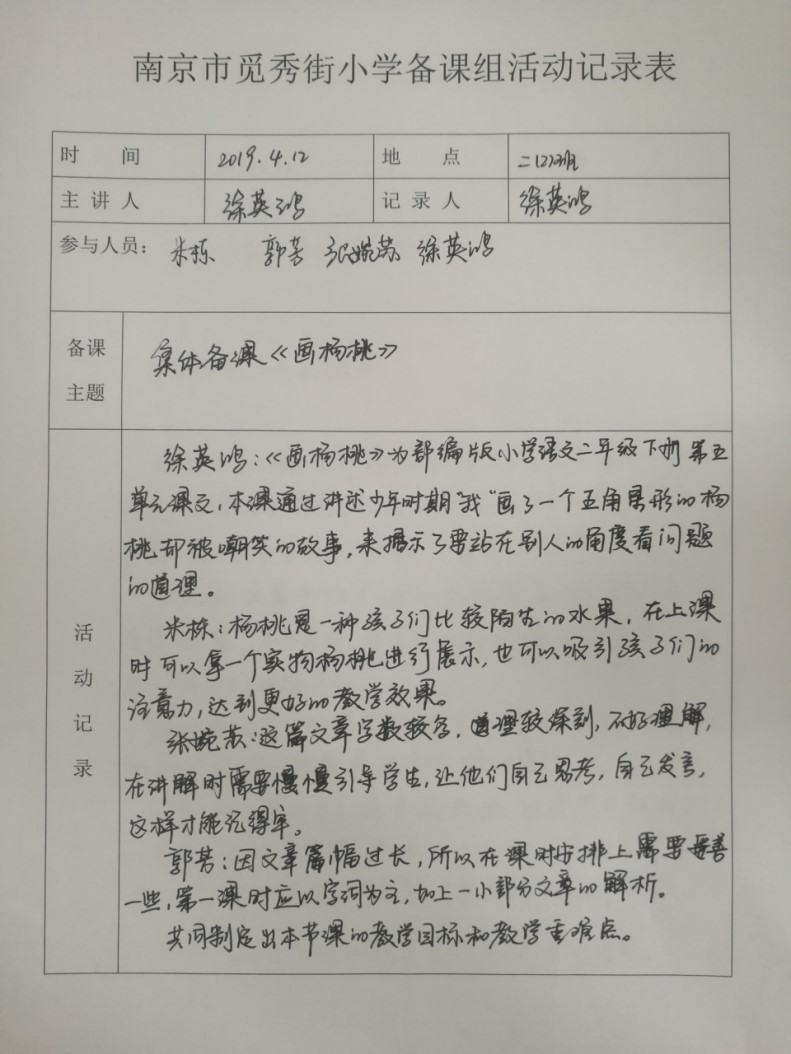 南京市觅秀街小学备课组活动记录表
时 间 2019.4.12 地 点 二(2)班
主 讲 人 徐英鸿 记 录 人 徐英鸿
参与人员: 米栋 郭芳 张婉苏 徐英鸿
备课
主题
集体备课《画杨桃》
活
动
记
录
徐英鸿:《画杨桃》为部编版小学语文二年级下册第五
单元课文,本课通过讲述少年时期“我”画了一个五角星形的杨
桃却被嘲笑的故事,来揭示了要站在别人的角度看问题
的道理。
米栋:杨桃是一种孩子们比较陌生的水果,在上课
时可以拿一个实物杨桃进行展示,也可以吸引孩子们的
注意力,达到更好的教学效果。
张婉苏:这篇文章字数较多,道理较深刻,不好理解,
在讲解时需要慢慢引导学生,让他们自己思考,自己发言,
这样才能记得牢。
郭芳:因文章篇幅过长,所以在课时安排上需要妥善
一些,第一课时应以字词为主,加上一小部分文章的解析。
共同制定出本节课的教学目标和教学重难点。